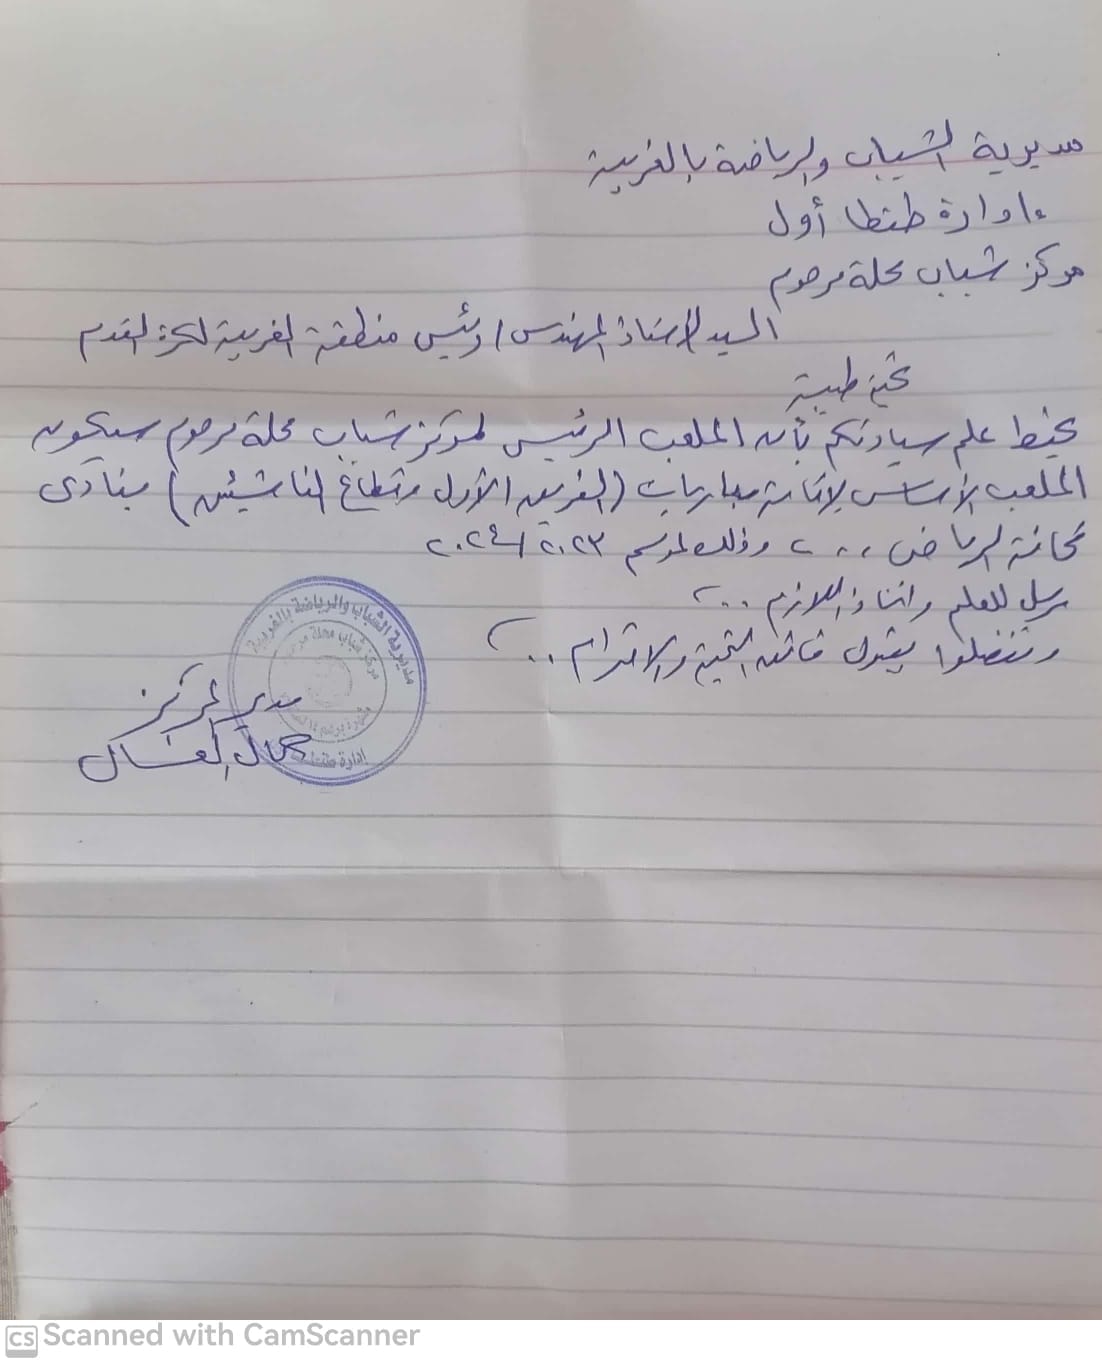 مديرية الشباب والرياضة بالغربية
إدارة طنطا أول
مركز شباب محلة مرحوم
السيد الأستاذ المهندس / رئيس منطقة الغربية لكرة القدم
تحية طيبة
نحيط علم سيادتكم بأن الملعب الرئيسى لمركز شباب محلة مرحوم سيكون
الملعب الأساسى لإقامة مباريات (الفريق الأول وقطاع الناشئين) بنادى
الرياضى ،،، وذلك لموسم ٢٠٢٣/٢٠٢٤
مرسل للعلم واتخاذ اللازم ...
وتفضلوا بقبول فائق التحية والاحترام ...
مدير المركز
جمال
مديرية الشباب والرياضة بالغربية
مركز شباب محلة مرحوم
إدارة طنطا
CS Scanned with CamScanner